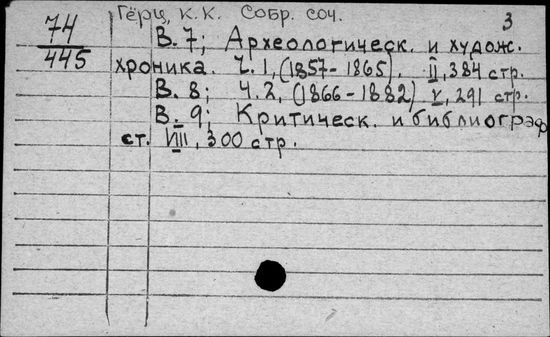 Гёрц, К.К. Собр. соч. 3
74
445
В. 7; Археологическ. и худож.
хроника. Ч. 1, (1857-1865). II, 384 стр.
В. 8; Ч. 2, (1866-1882) V, 291 стр.
В. 9; Критическ. и библиограф
ст. VIII, 300 стр.